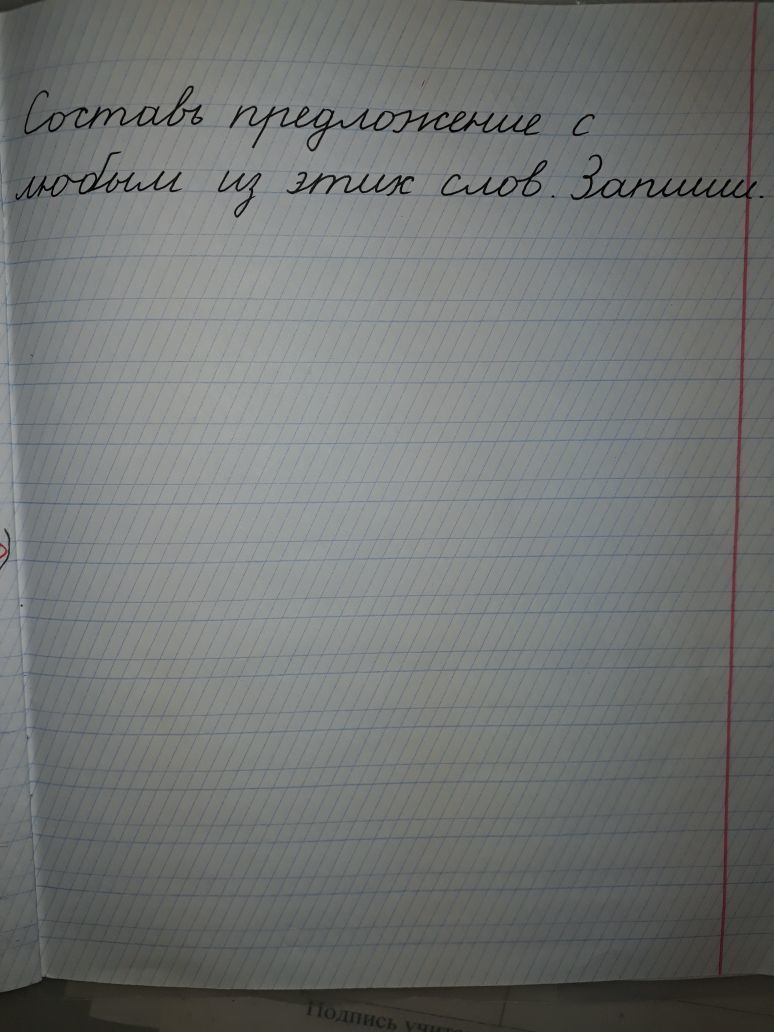 Составь предложение с
любым из этих слов. Запиши.
Подпись